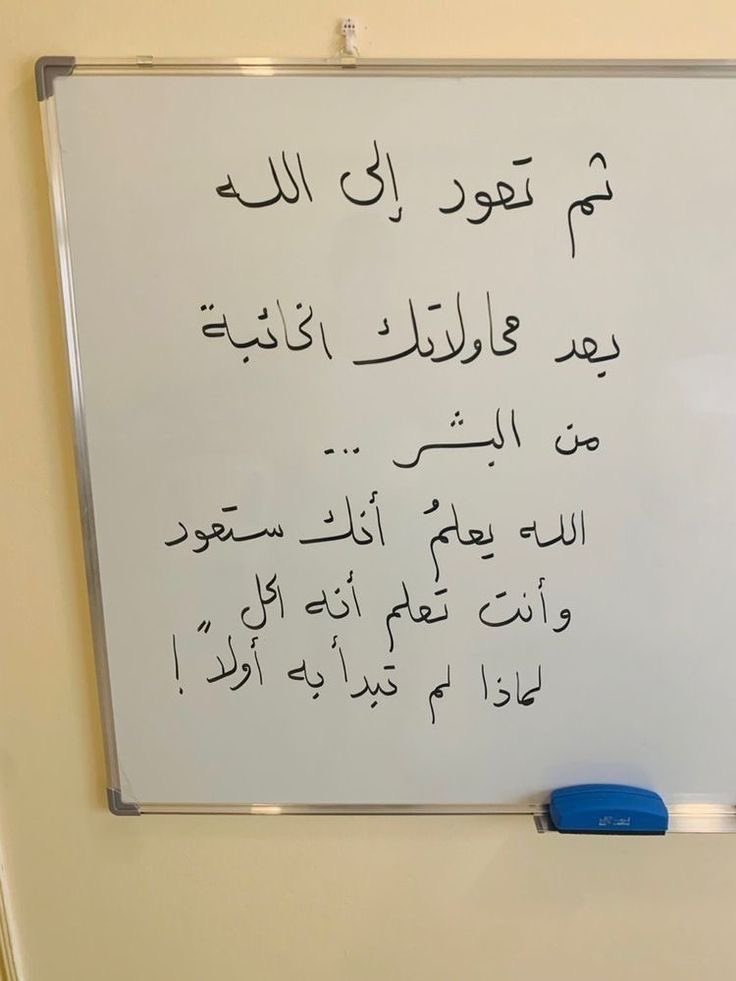 ثم تعود إلى الله
بعد محاولاتك الخائبة
من البشر ...
الله يعلمُ أنك ستعود
وأنت تعلم أنه الحل
لماذا لم تبدأ به أولاً !